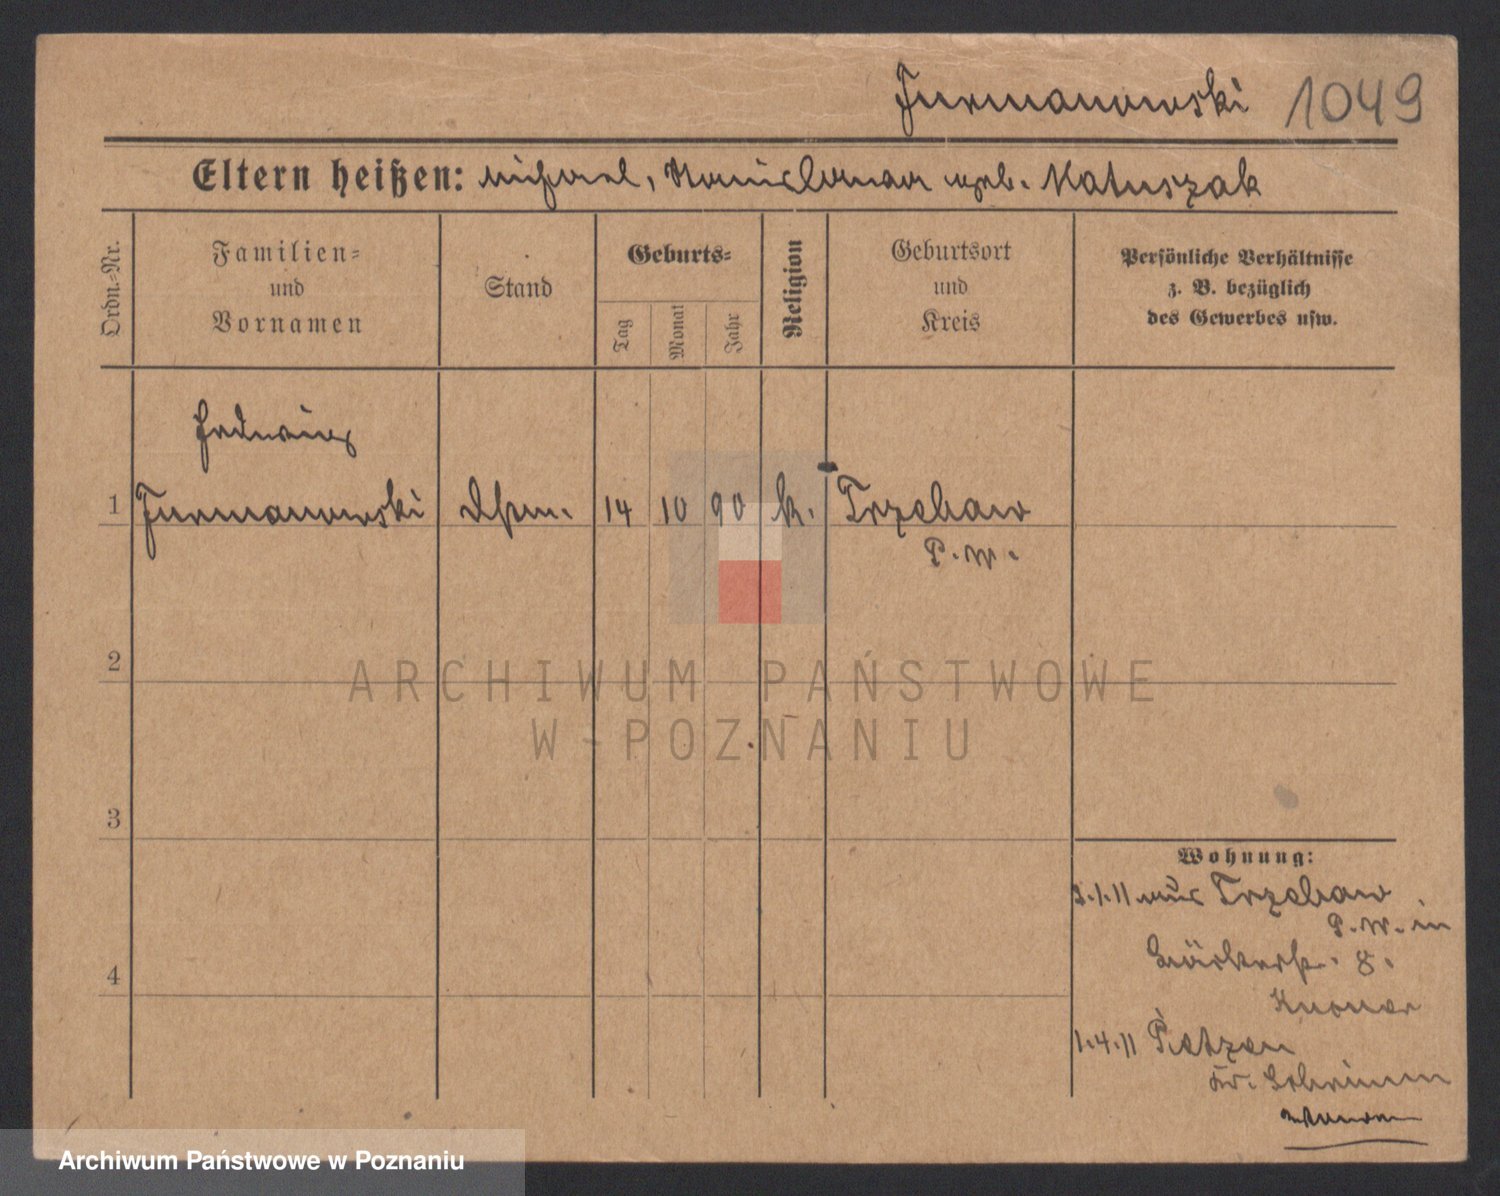 Furmanowski 1049
Eltern heißen: Michael, Stanislawa geb. Matuszak
Ordn.-Nr.
Familien-
und
Vornamen
Stand
Geburts-
Tag
Monat
Jahr
Religion
Geburtsort
und
Kreis
Persönliche Verhältnisse
z. B. bezüglich
des Gewerbes usw.
Hedwig
1 Furmanowski 14 10 90 k. Trzebaw
P. W.
2
3
4
Wohnung:
2.1.11 aus Trzebaw
P. W. in
8.
1.4.11
Kr. Schrimm
ARCHIWUM PAŃSTWOWE
W POZNANIU
Archiwum Państwowe w Poznaniu